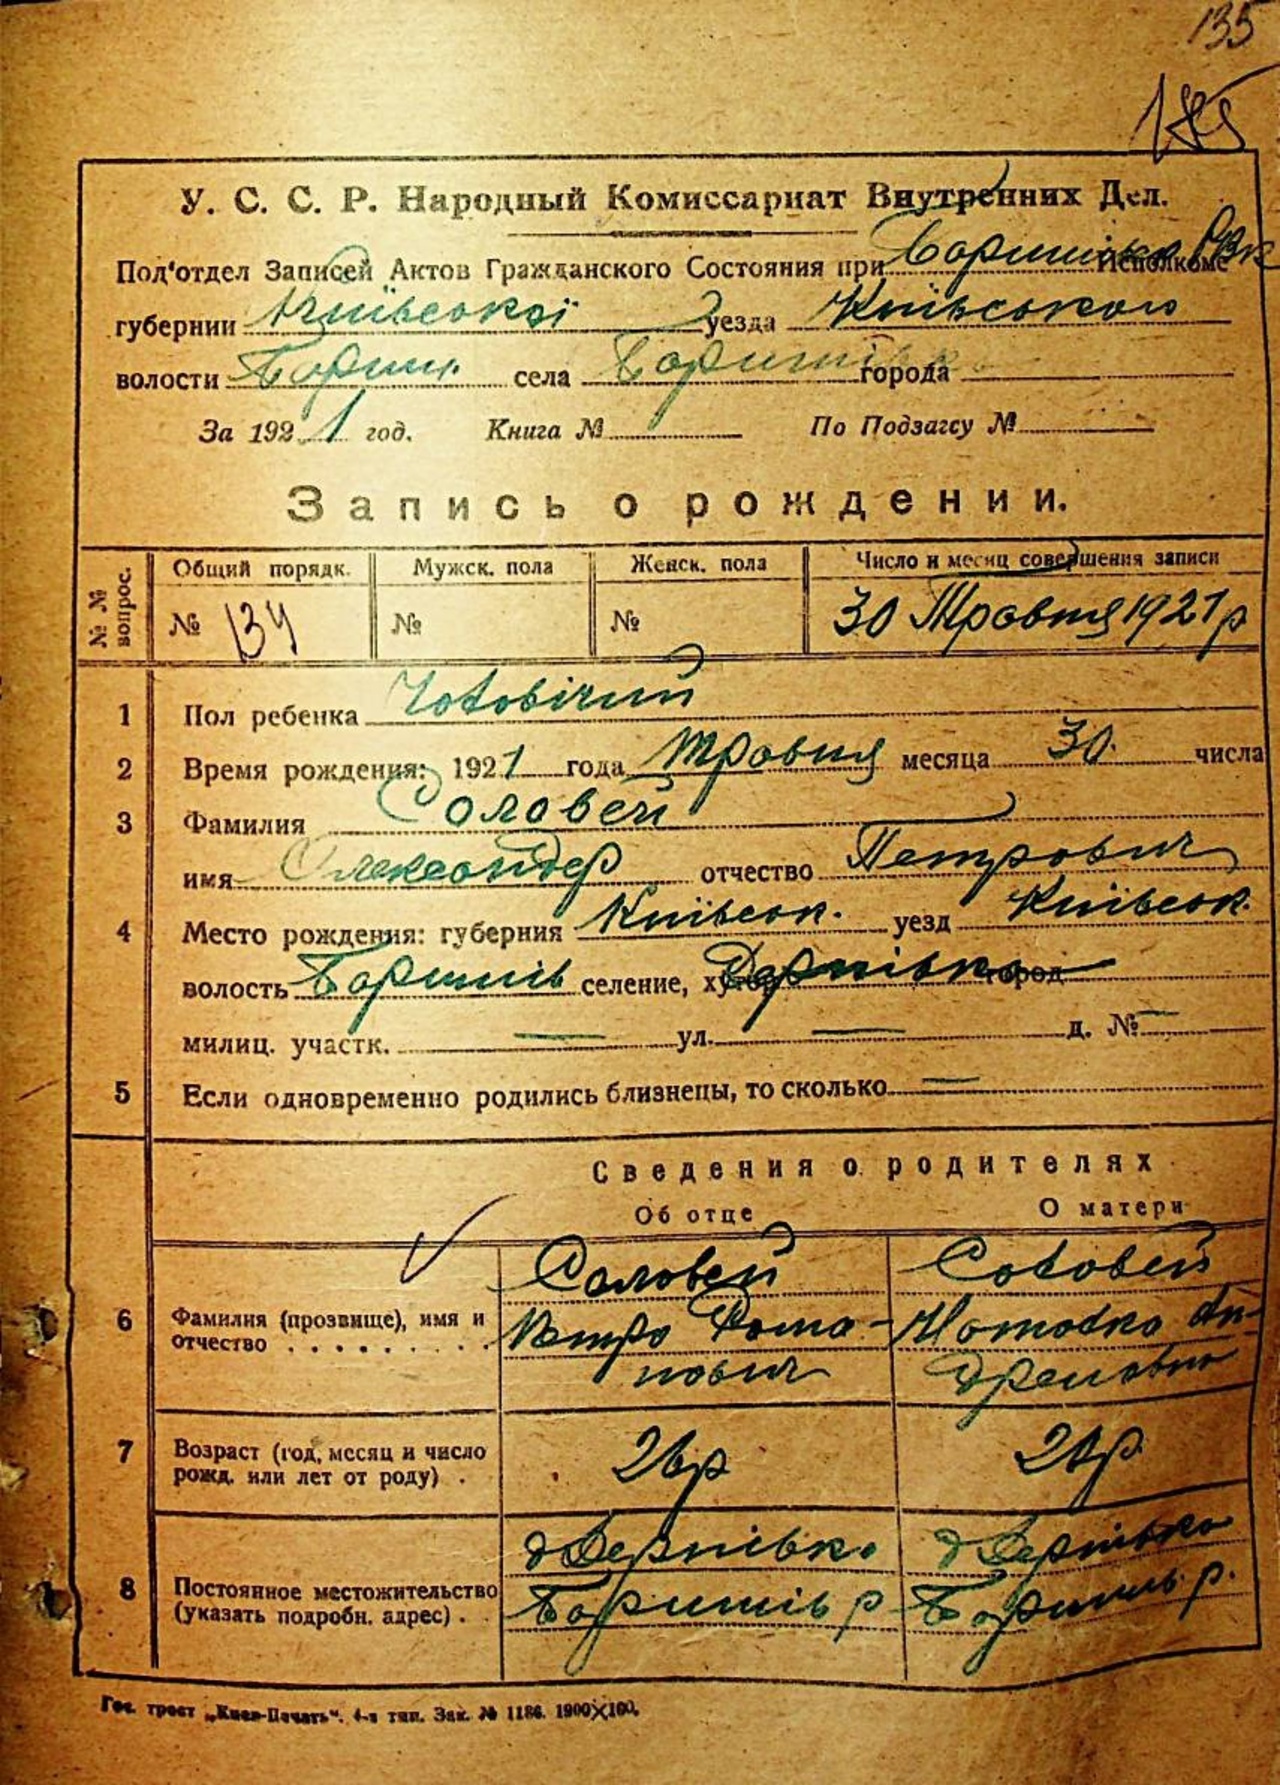 135
185
У. С. С. Р. Народный Комиссариат Внутренних Дел.
Под'отдел Записей Актов Гражданского Состояния при Исполкоме
губернии Київської уезда Київського
волости Бориш. села города
За 1921 год. Книга № По Подзагсу №
Запись о рождении.
№ № вопрос.
Общий порядк. Мужск. пола Женск. пола Число и месяц совершения записи
№ 134 № № 30 Травня 1921 р
1 Пол ребенка Чоловічий
2 Время рождения: 1921 года Травня месяца 30. числа
3 Фамилия Соловей
имя Олександер отчество Петрович
4 Место рождения: губерния Київськ. уезд Київськ.
волость Боришпіль селение, город
милиц. участк. — ул. — д. № —
5 Если одновременно родились близнецы, то сколько —
Сведения о родителях
Об отце О матери
6 Фамилия (прозвище), имя и отчество
Соловей
Петро Рома-
нович
Соловей
Мотодна Ан-
7 Возраст (год, месяц и число рожд. или лет от роду) . 26 р
8 Постоянное местожительство (указать подробн. адрес) .
Гос. трест „Киев-Печать“. 4-я тип. Зак. № 1186. 1900×100.